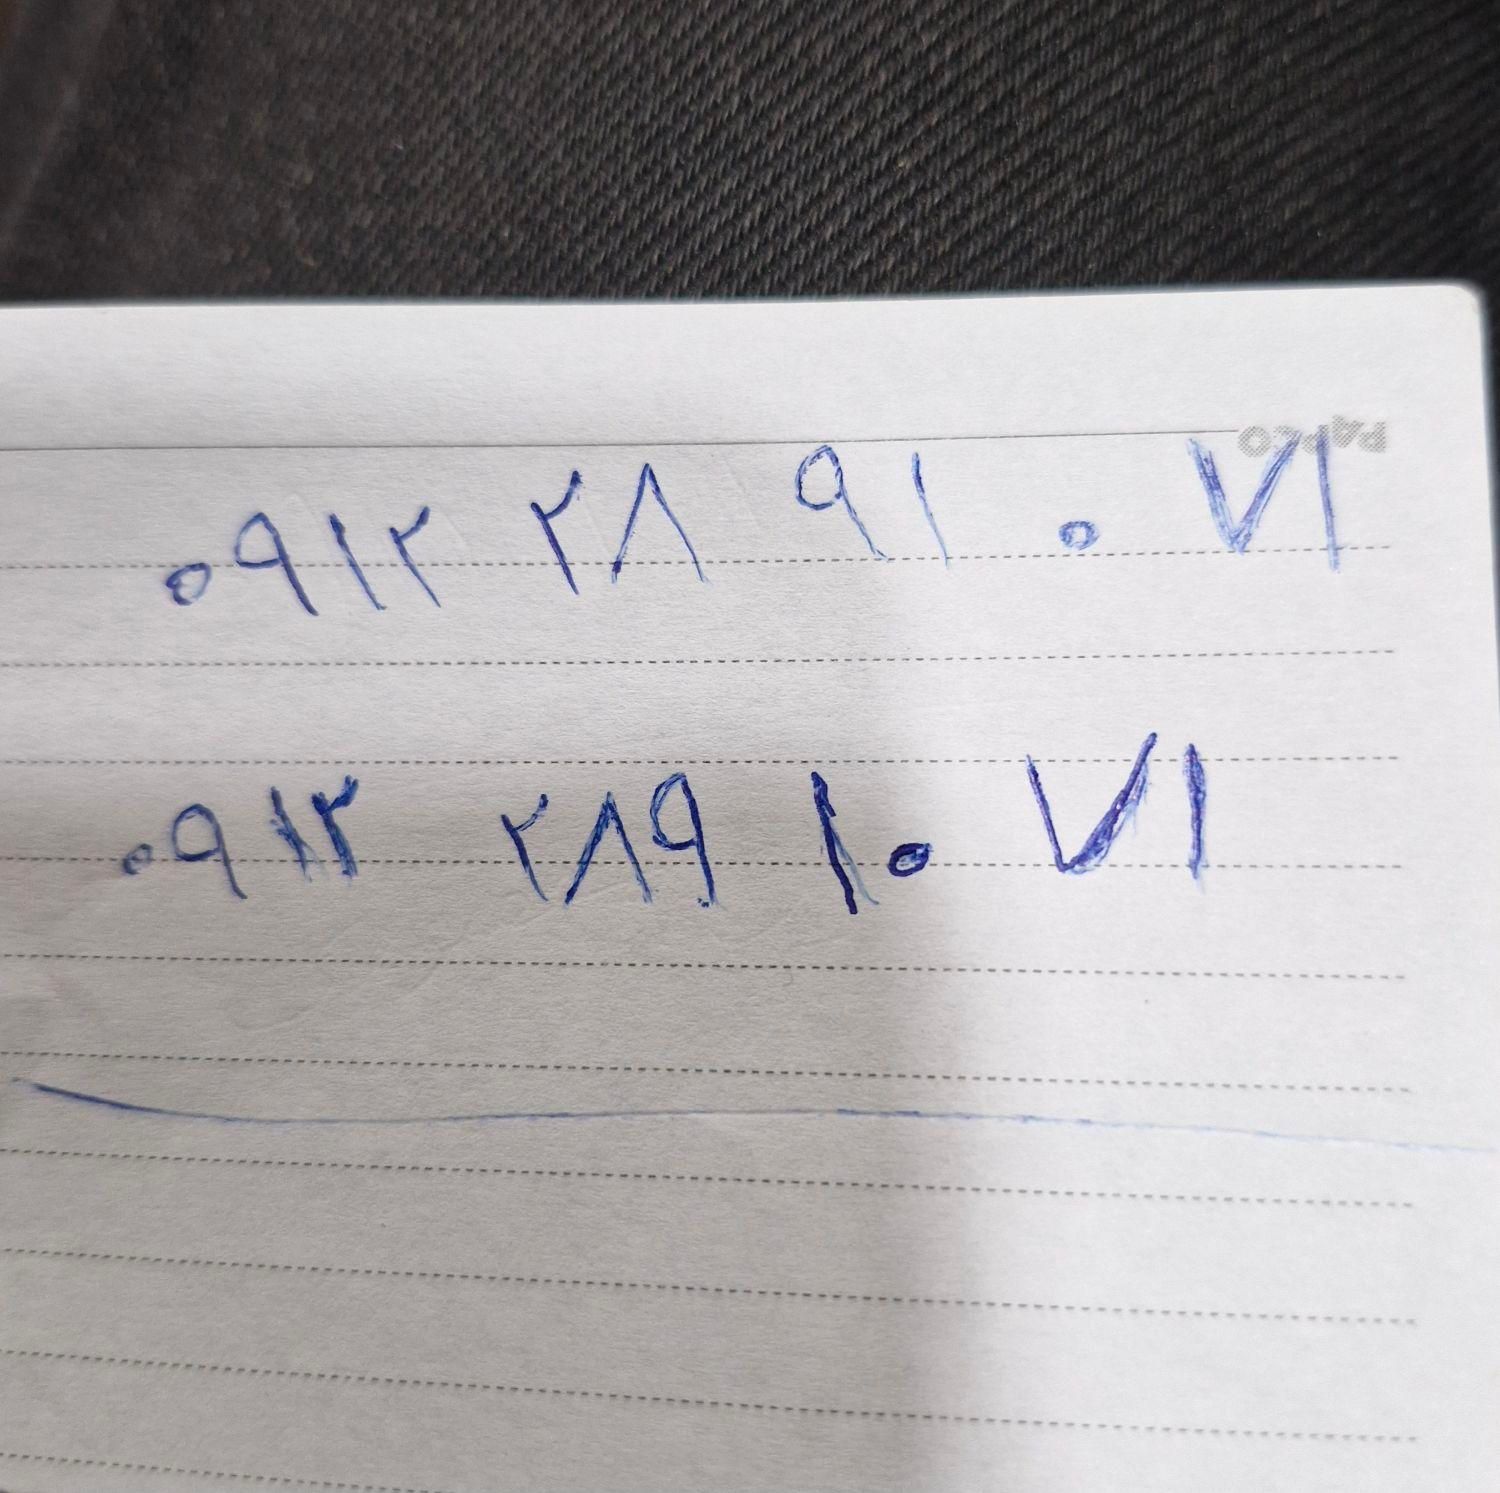 PAPCO
۰۹۱۲ ۲۸ ۹۱ ۰ ۷۱
۰۹۱۲ ۲۸۹ ۱۰ ۷۱